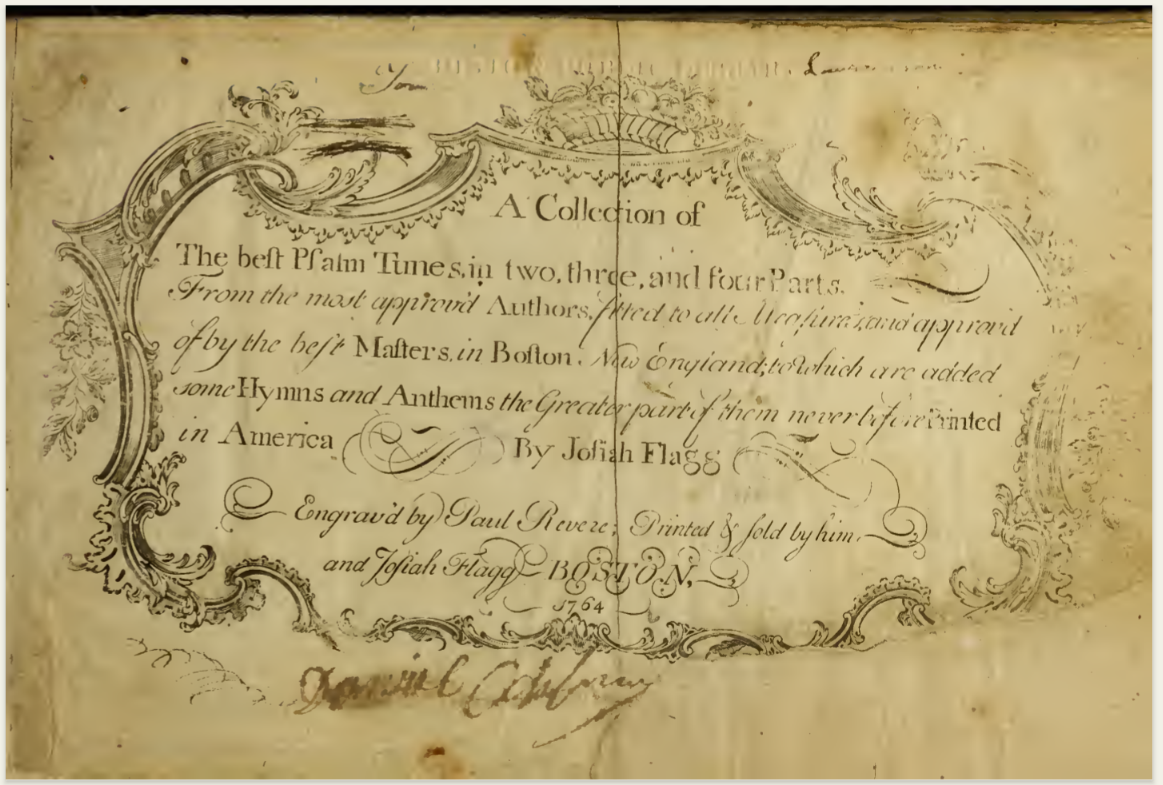 A Collection of
The beſt Pſalm Tunes, in two, three, and four Parts.
From the most approv'd Authors, fitted to all Meaſures, and approv'd
of by the beſt Maſters, in Boſton, New England; to which are added
some Hymns and Anthems the Greater part of them never before Printed
in America. By Joſiah Flagg
Engrav'd by Paul Revere; Printed & ſold by him.
and Joſiah Flagg BOSTON,
1764